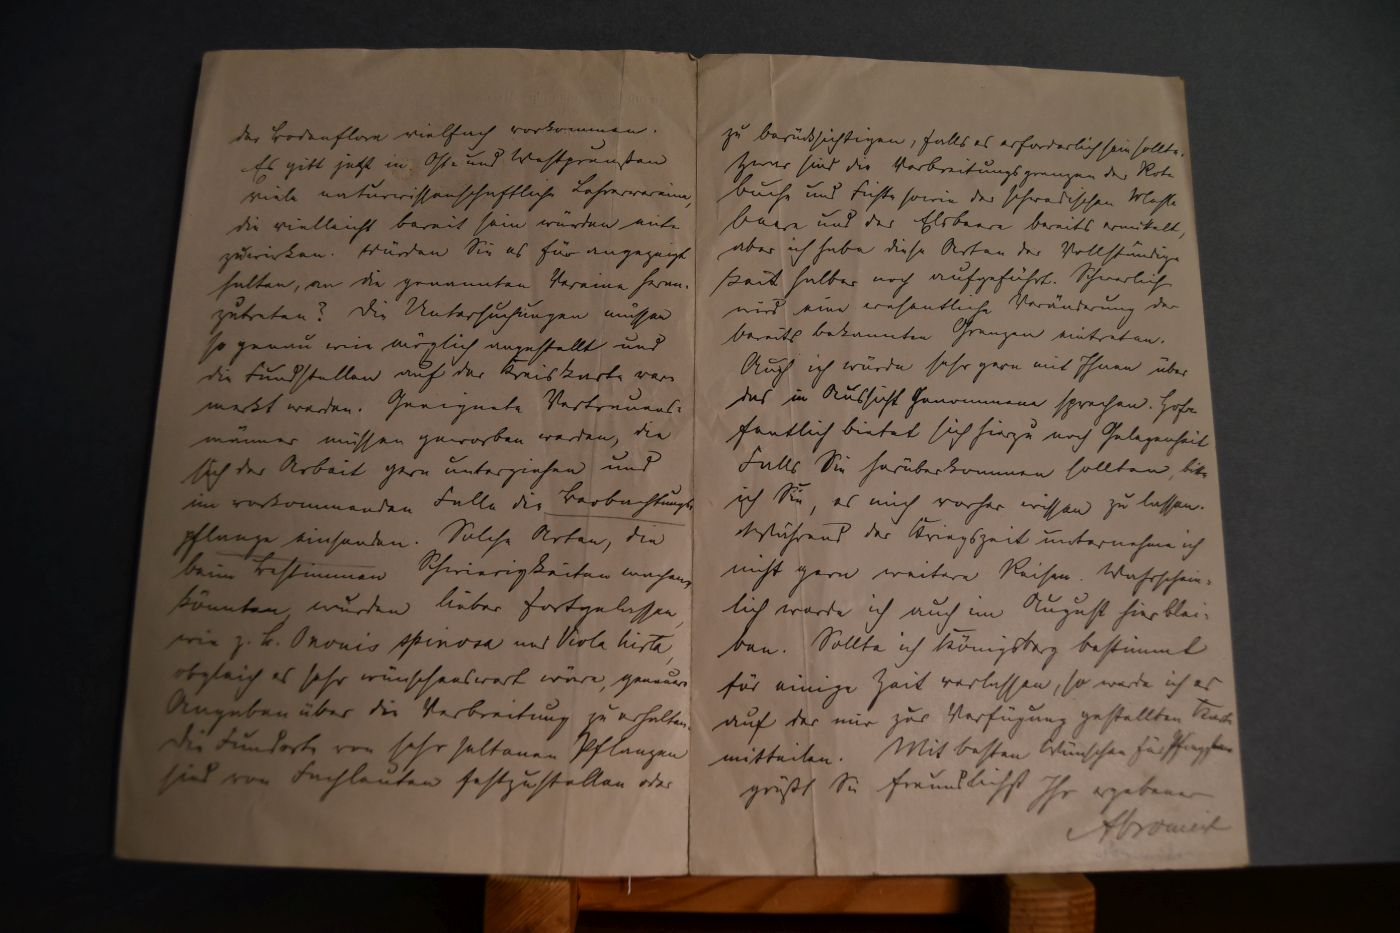 der Bodenflora vielfach vorkommen.
Es gibt jetzt in Ost- und Westpreußen
viele naturwissenschaftliche Lehrervereine,
die vielleicht bereit sein würden mit-
zuwirken. Würden Sie es für angezeigt
halten, an die genannten Vereine heran-
zutreten? Die Untersuchungen müssen
so genau wie möglich angestellt und
die Fundstellen auf der Kreiskarte ver-
merkt werden. Geeignete Vertrauens-
männer müssen geworben werden, die
sich der Arbeit gern unterziehen und
im vorkommenden Falle die Beobachtungs-
pflanze einsenden. Solche Arten, die
beim Bestimmen Schwierigkeiten machen
könnten, würden lieber fortgelassen,
wie z. B. Ononis spinosa und Viola hirta,
obgleich es sehr wünschenswert wäre, genauere
Angaben über die Verbreitung zu erhalten.
Die Fundorte von sehr seltenen Pflanzen
sind von Fachleuten festzustellen oder
zu berücksichtigen, falls es erforderlich sein sollte.
Zwar sind die Verbreitungsgrenzen der Rot-
buche und Fichte sowie der schwedischen Mehl-
beere und der Elsbeere bereits ermittelt,
aber ich habe diese Arten der Vollständig-
keit halber noch aufgeführt. Schwerlich
wird eine wesentliche Veränderung der
bereits bekannten Grenzen eintreten.
Auch ich würde sehr gern mit Ihnen über
das in Aussicht Genommene sprechen. Hof-
fentlich bietet sich hierzu noch Gelegenheit
Falls Sie herüberkommen sollten, bitte
ich Sie, es mich vorher wissen zu lassen.
Während der Kriegszeit unternehme ich
nicht gern weitere Reisen. Wahrschein-
lich werde ich auch im August hier blei-
ben. Sollte ich Königsberg bestimmt
für einige Zeit verlassen, so werde ich es
auf der mir zur Verfügung gestellten Karte
mitteilen. Mit besten Wünschen für Pfingsten
grüßt Sie freundlichst Ihr ergebener
Abromeit